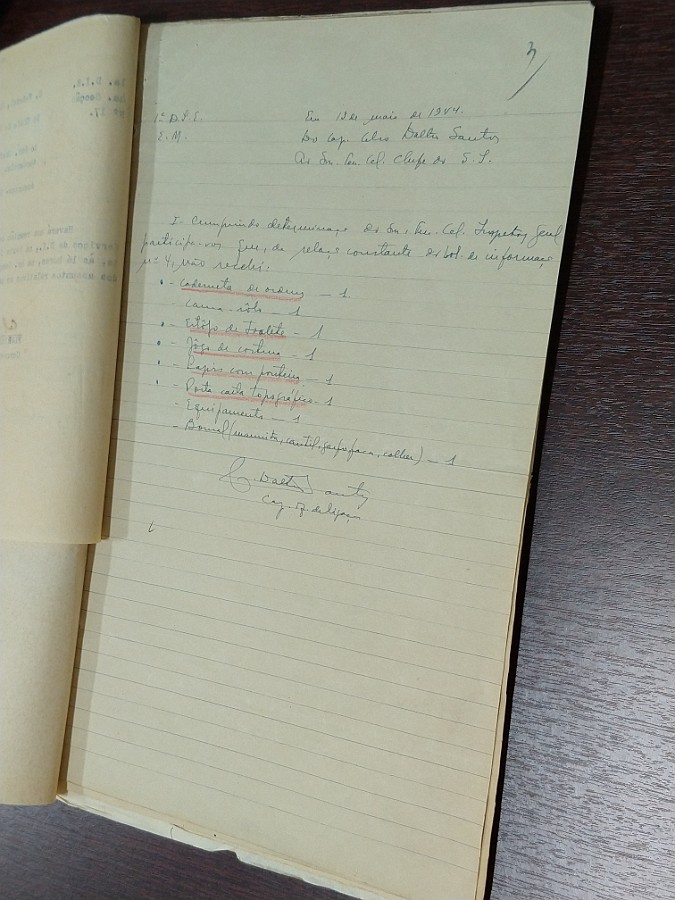 3
1ª D.I.E. Em 12 de maio de 1944.
E.M. Do Cap. Celso Daltro Santos
Ao Sr. Ten. Cel. Chefe do S. I.
I- Cumprindo determinação do Sr. Ten. Cel. Inspetor Geral
participo-vos que, da relação constante do bol. de informações
nº 4, não recebi:
- Caderneta de ordens — 1
- Cama rôlo — 1
- Estôjo de toalete — 1
- Jôgo de costura — 1
- Lapis com ponteira — 1
- Porta carta topográfico — 1
- Equipamento — 1
- Bornal (marmita, cantil, garfo, faca, colher) — 1
C. Daltro Santos
Cap. de ligação